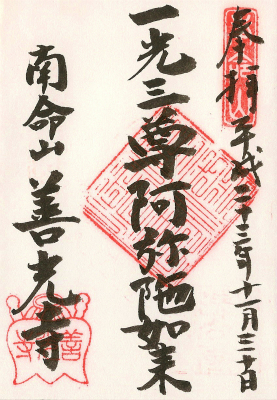 奉拝 平成二十三年十一月三十日
一光三尊阿弥陀如来
南命山 善光寺